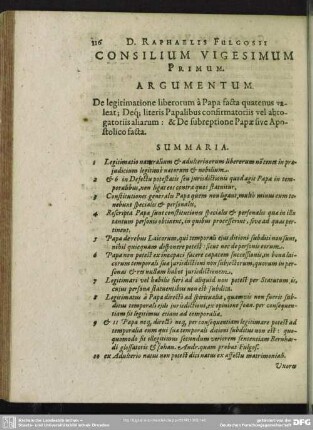 116 D. RAPHAELIS FULGOSII
CONSILIUM VIGESIMUM
PRIMUM.
ARGUMENTUM.
De legitimatione liberorum à Papa facta quatenus va-
leat; Deq; literis Papalibus confirmatoriis vel abro-
gatoriis aliarum: & De subreptione Papæ sive Apo-
stolico facta.
SUMMARIA.
1 Legitimatio naturalium & adulterinorum liberorum in præ-
judicium legitimi natorum & nobilium.
2 & 6 in Defectu potestatis seu jurisdictionis quod agit Papa in tem-
poralibus, non ligat eos contra quos statuitur.
3 Constitutiones generales Papa quem non ligant, multò minus eum te-
nebunt speciales & personales.
4 Rescripta Papæ sunt constitutiones speciales & personales quæ in illis
tantum personis obtinent, in quibus processerint, sive ad quas per-
tinent.
5 Papa de rebus Laicorum, qui temporali ejus ditioni subditi non sunt,
nihil quicquam disponere potest; sicut nec de personis eorum.
6 Papa non potest ex incapaci facere capacem successionis, in bona lai-
corum temporali sua jurisdictioni non subjectorum, quoniam in per-
sonas & res nullam habet jurisdictionem.
7 Legitimari vel habilis fieri ad aliquid non potest per Statutum is,
cujus persona statuentibus non est subdita.
8 Legitimatus à Papa directò ad spiritualia, quamvis non fuerit sub-
ditus temporali ejus jurisdictioni, ex opinione Joan. per consequen-
tiam sit legitimus etiam ad temporalia.
9 & 11 Papa neq; directò neq; per consequentiam legitimare potest ad
temporalia eum qui sua temporali ditioni subditus non est: quo-
quomodo sit ellegitimus secundum veriorem sententiam Bernhar-
di glossatoris & Johan. Andr. quam probat Fulgos.
10 ex Adulterio natus non potest dici natus ex affectu matrimoniali.
Uxore